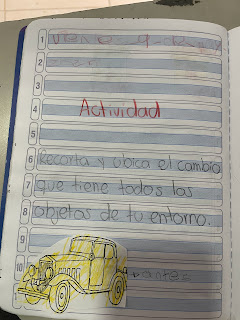 1
2
3
4 Actividad
5
6 Recorta y ubica el cambio
7 que tiene todos los
8 objetos de tu entorno.
9
10 antes